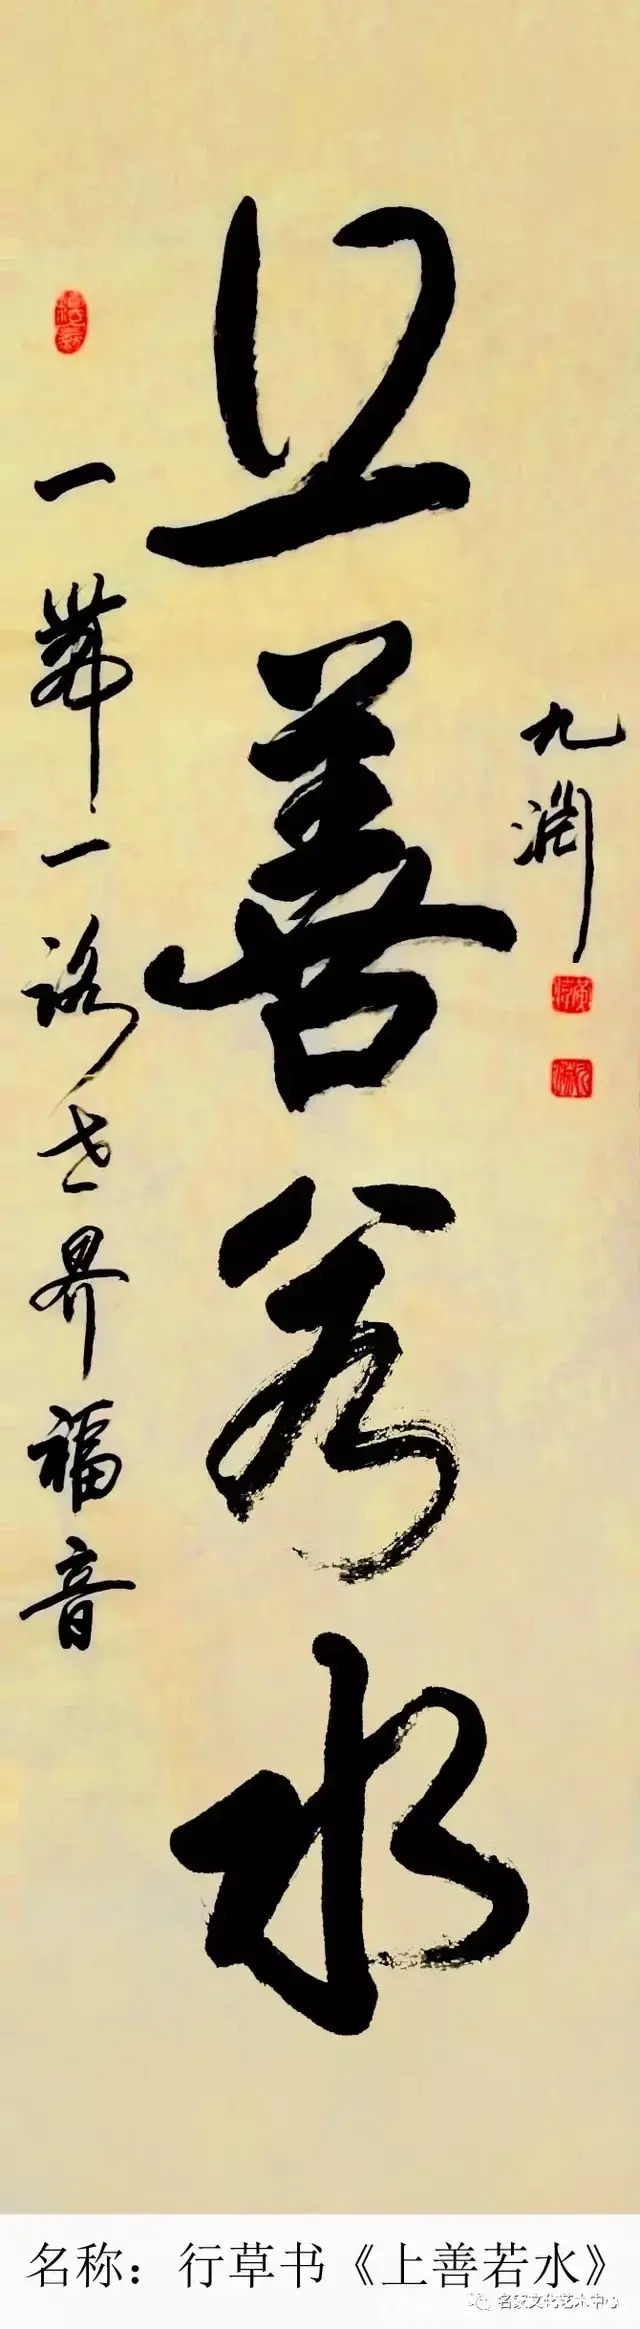 九渊
上善若水
一帶一路世界福音
名称：行草书《上善若水》
名家文化艺术中心